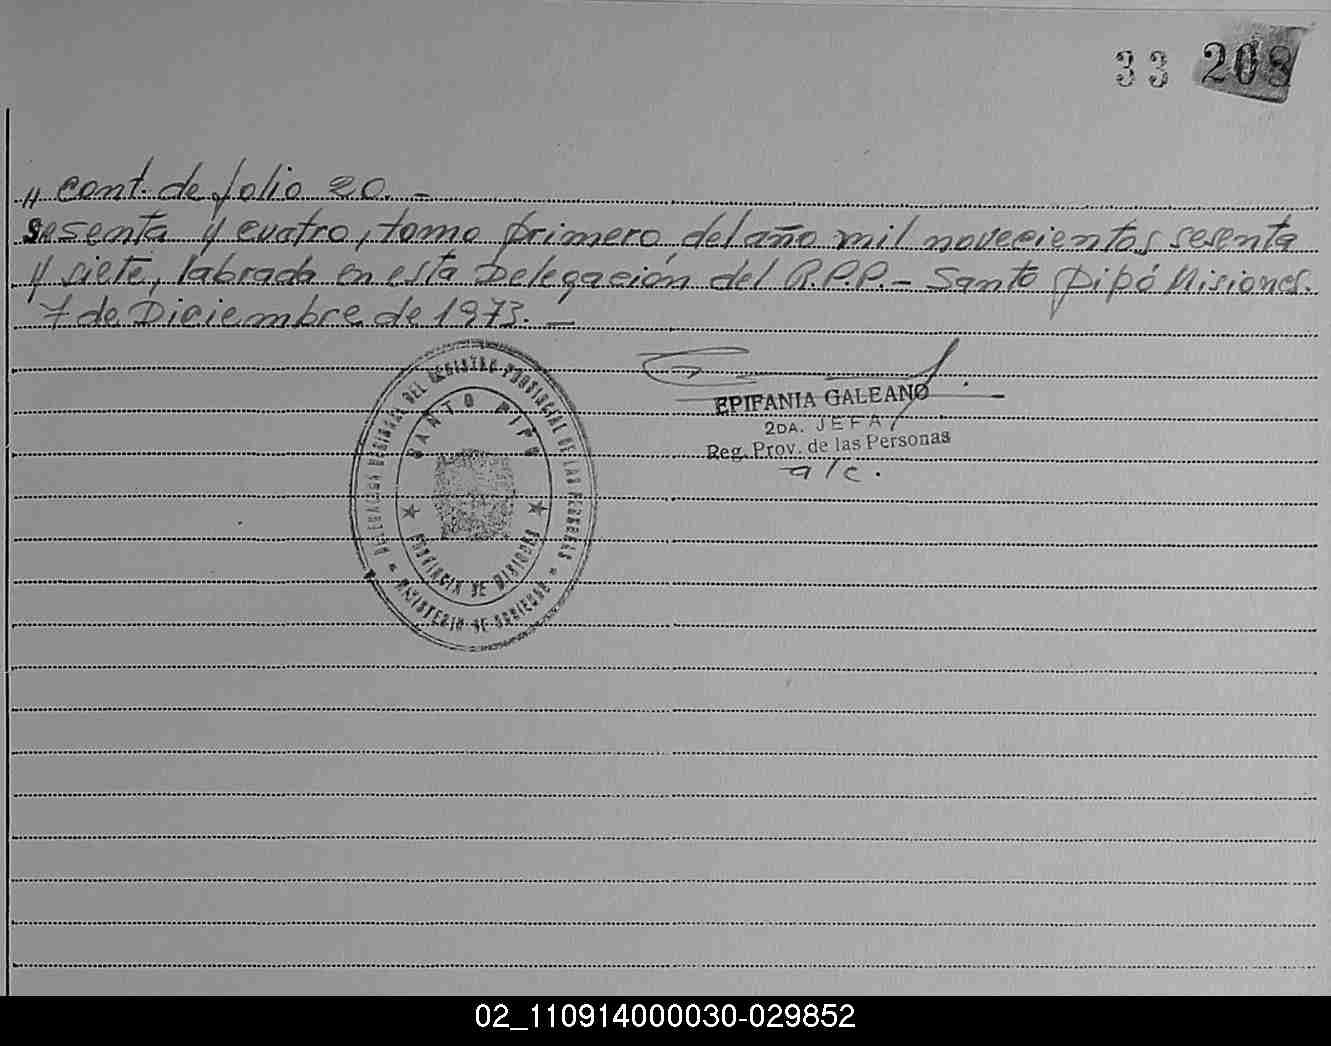 33 208
„ cont. de folio 20. –
sesenta y cuatro, tomo primero, del año mil novecientos sesenta
y siete, labrada en esta Delegación del R.P.P. – Santo Pipó Misiones.
7 de Diciembre de 1973. —
DELEGACION REGIONAL DEL REGISTRO PROVINCIAL DE LAS PERSONAS
SANTO PIPO
PROVINCIA DE MISIONES
MINISTERIO DE GOBIERNO
EPIFANIA GALEANO
2DA. JEFA
Reg. Prov. de las Personas
a/c.
02_110914000030-029852